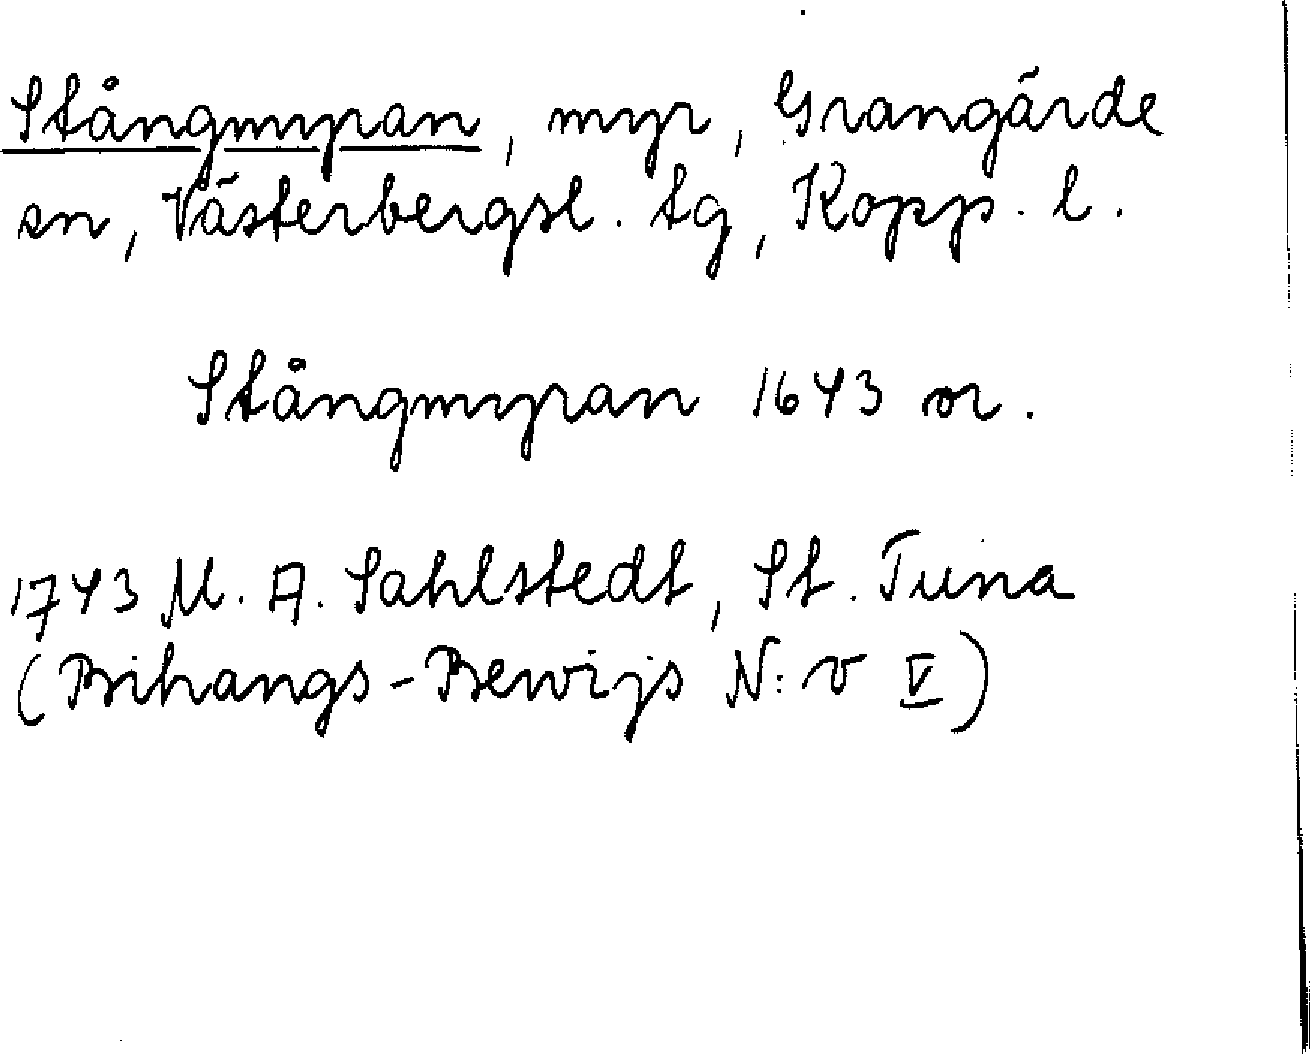 Stångmyran, myr, Grangärde
sn, Västerbergsl. tg, Kopp. l.
Stångmyran 1643 or.
1743 M. A. Sahlstedt, St. Tuna
(Bihangs-Bewijs N:o V)